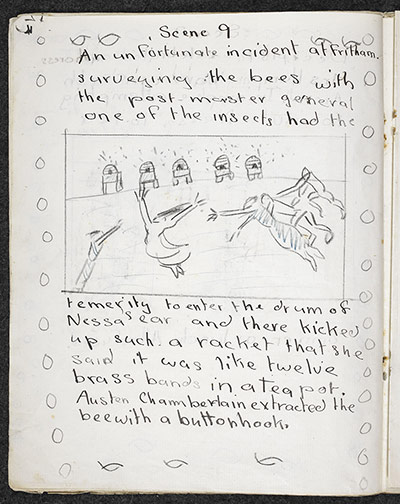 Scene 9
An unfortunate incident at Fritham.
surveying the bees with
the post master general
one of the insects had the
temerity to enter the drum of
Nessa's ear and there kicked
up such a racket that she
said it was like twelve
brass bands in a tea pot.
Austen Chamberlain extracted the
bee with a buttonhook.